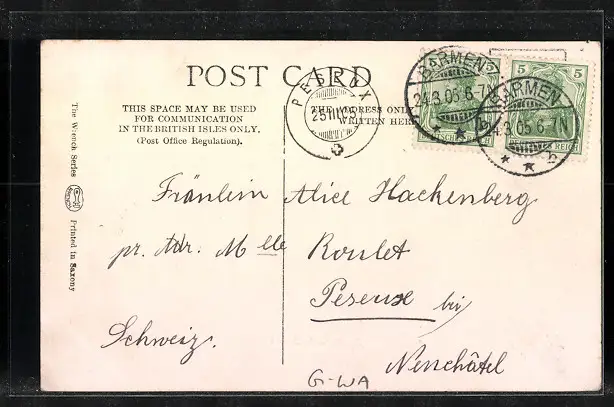 POST CARD
THIS SPACE MAY BE USED
FOR COMMUNICATION
IN THE BRITISH ISLES ONLY.
(Post Office Regulation).
THE ADDRESS ONLY
WRITTEN HERE
PESEUX
25 III 05
BARMEN
24.3.05 6-7N
BARMEN
24.3.05 6-7N
5
5
REICH
The Wrench Series
Printed in Saxony
Fräulein Alice Hackenberg
pr. Adr. Mlle Roulet
Peseux bei
Schweiz. Neuchâtel
G-WA